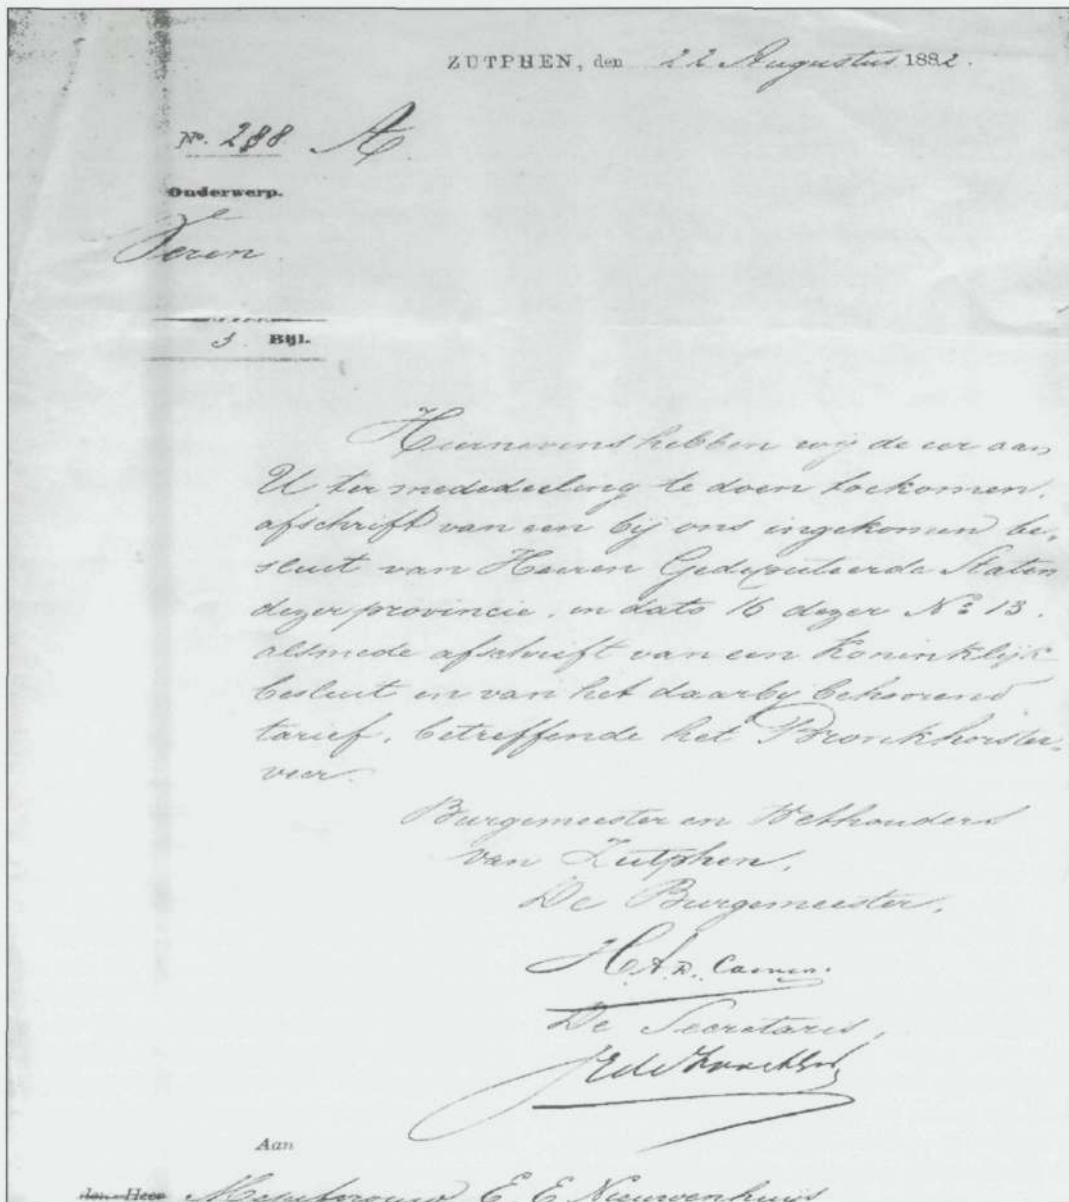 ZUTPHEN, den 22 Augustus 1882.
No. 288 A
Onderwerp.
Veren
3 Bijl.
Hiernevens hebben wij de eer aan
U ter mededeeling te doen toekomen,
afschrift van een bij ons ingekomen be-
sluit van Heeren Gedeputeerde Staten
dezer provincie, in dato 16 dezer No 13.
alsmede afschrift van een Koninklijk
besluit en van het daarbij behoorend
tarief, betreffende het Bronkhorster-
veer.
Burgemeester en Wethouders
van Zutphen,
De Burgemeester,
H.A.D.
De Secretaris,
Aan
den Heer Mejufvrouw E E Nieuwenhuijs